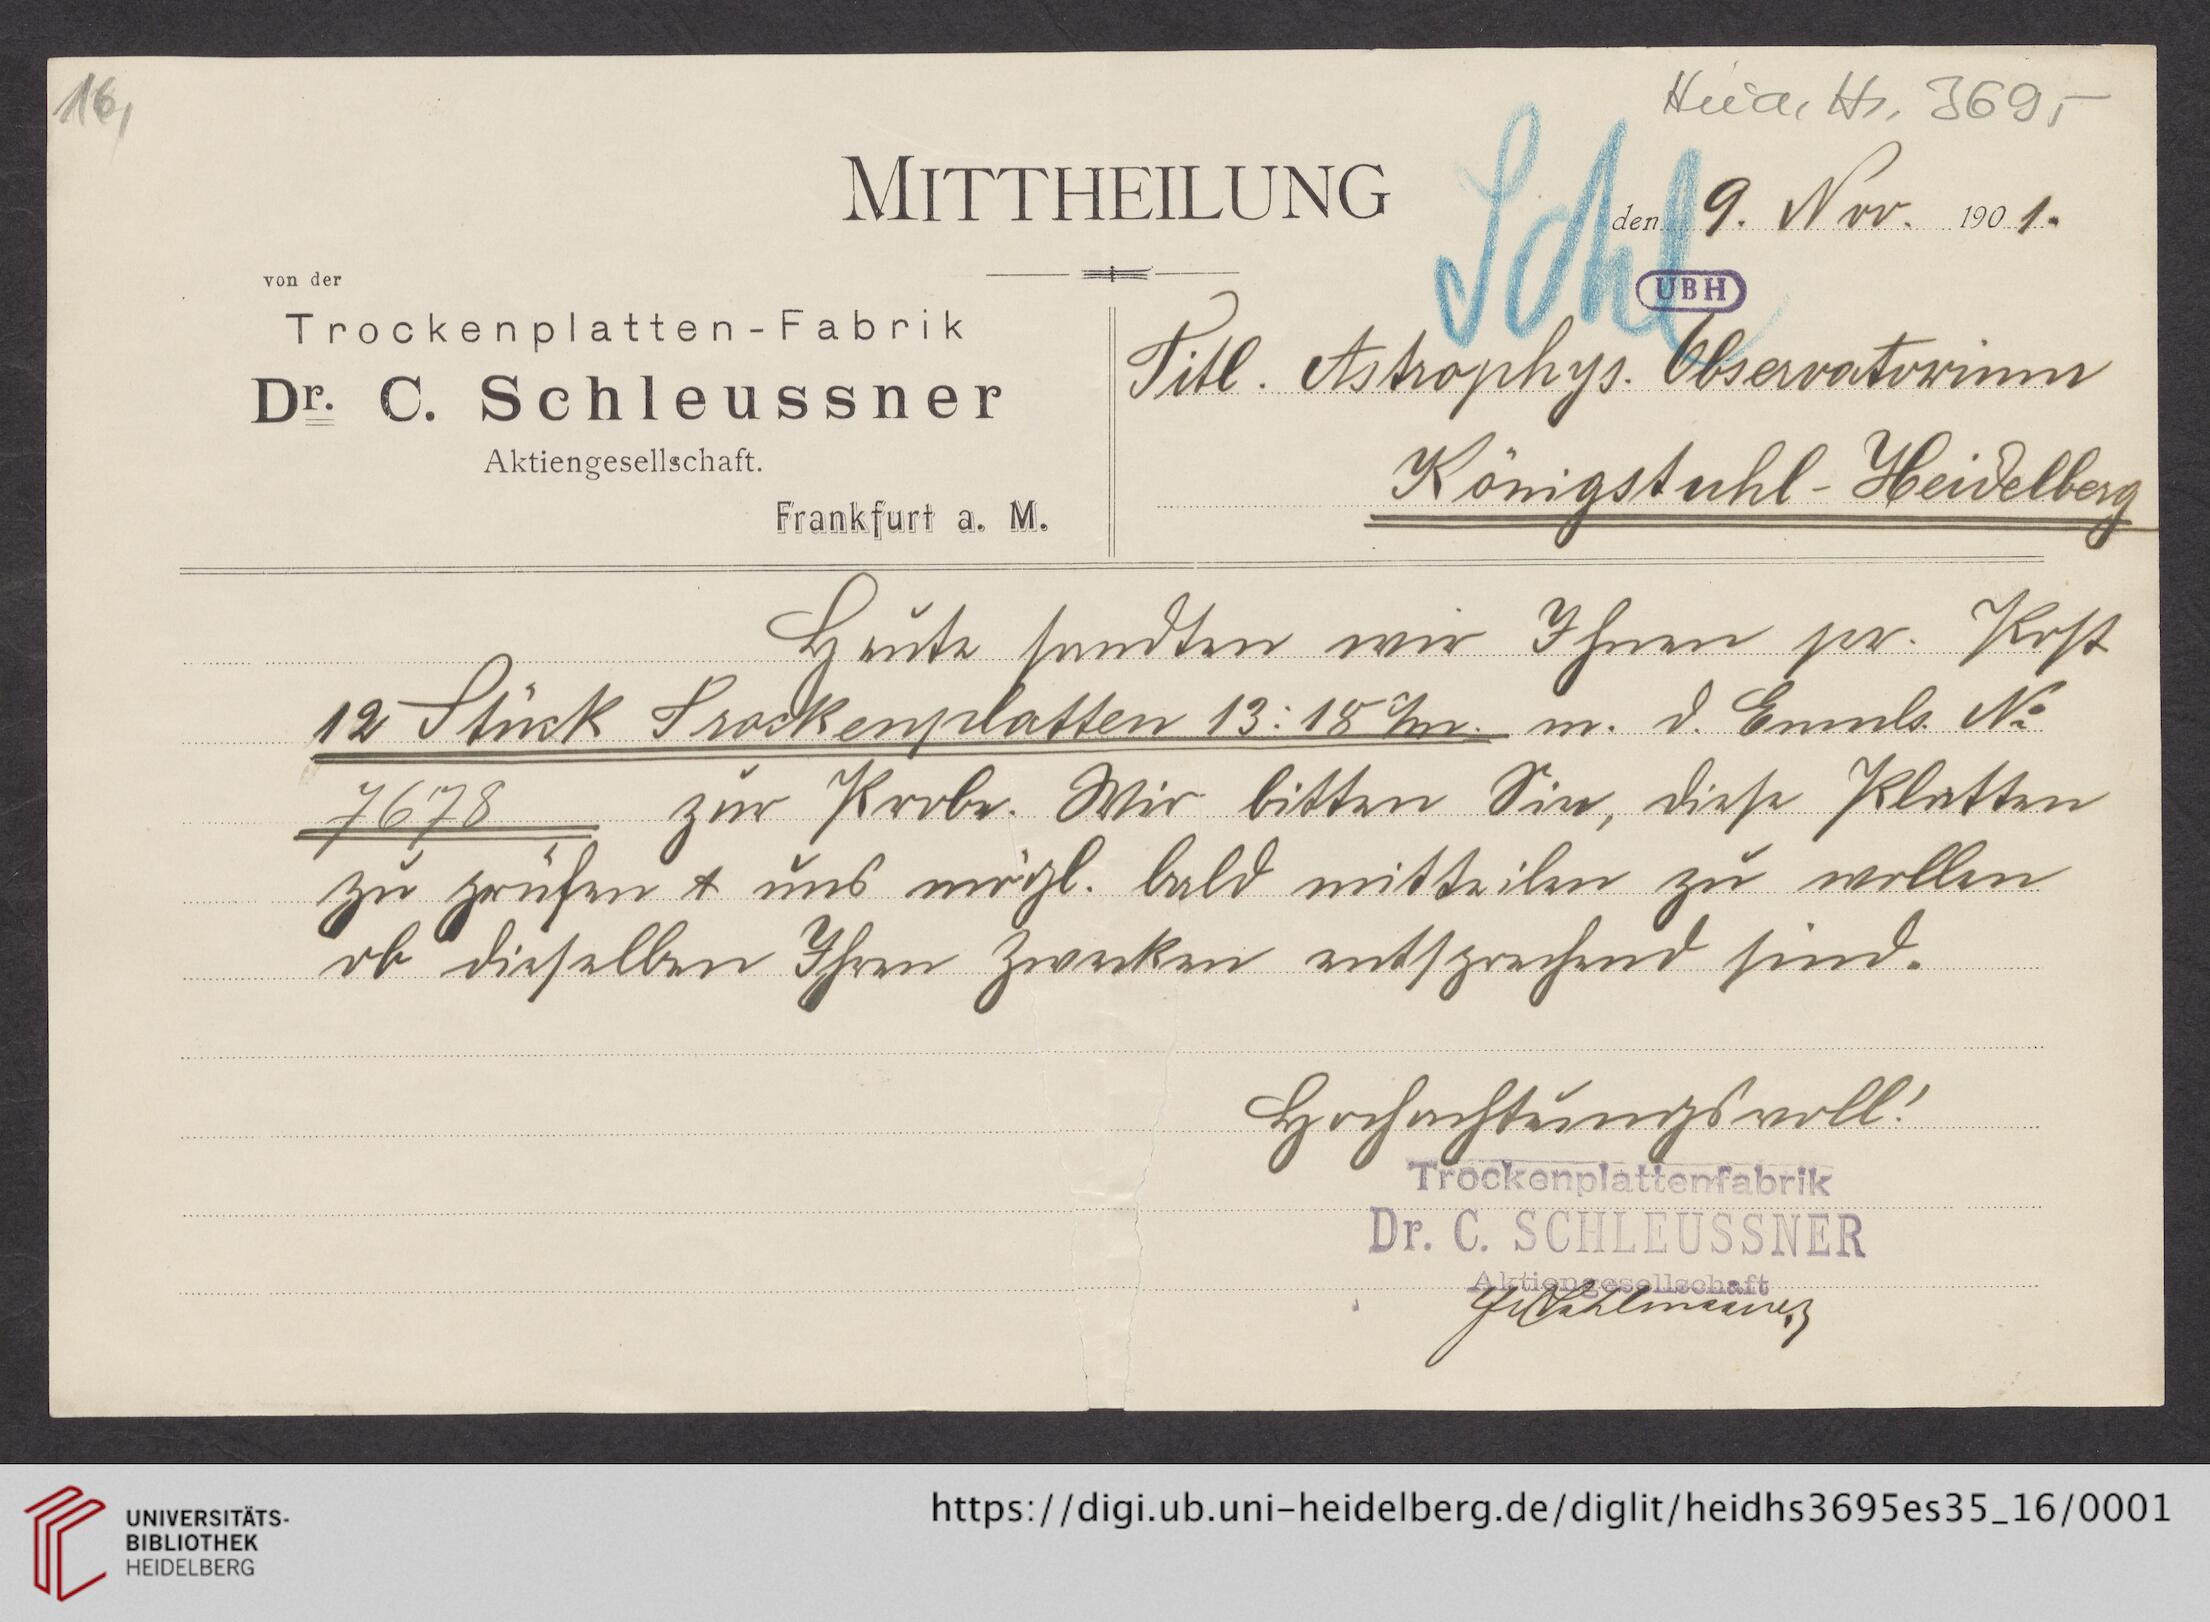 16,
Heid. Hs. 3695
Schl
MITTHEILUNG
den 9. Nov. 1901.
UBH
von der
Trockenplatten-Fabrik
Dr. C. Schleussner
Aktiengesellschaft.
Frankfurt a. M.
Titl. Astrophys. Observatorium
Königstuhl-Heidelberg
Heute sandten wir Ihnen pr. Post
12 Stück Trockenplatten 13:18 c/m. m. d. Emuls. No
7678 zur Probe. Wir bitten Sie, diese Platten
zu prüfen & uns mögl. bald mitteilen zu wollen
ob dieselben Ihren Zwecken entsprechend sind.
Hochachtungsvoll!
Trockenplattenfabrik
Dr. C. SCHLEUSSNER
Aktiengesellschaft
UNIVERSITÄTS-
BIBLIOTHEK
HEIDELBERG
https://digi.ub.uni-heidelberg.de/diglit/heidhs3695es35_16/0001